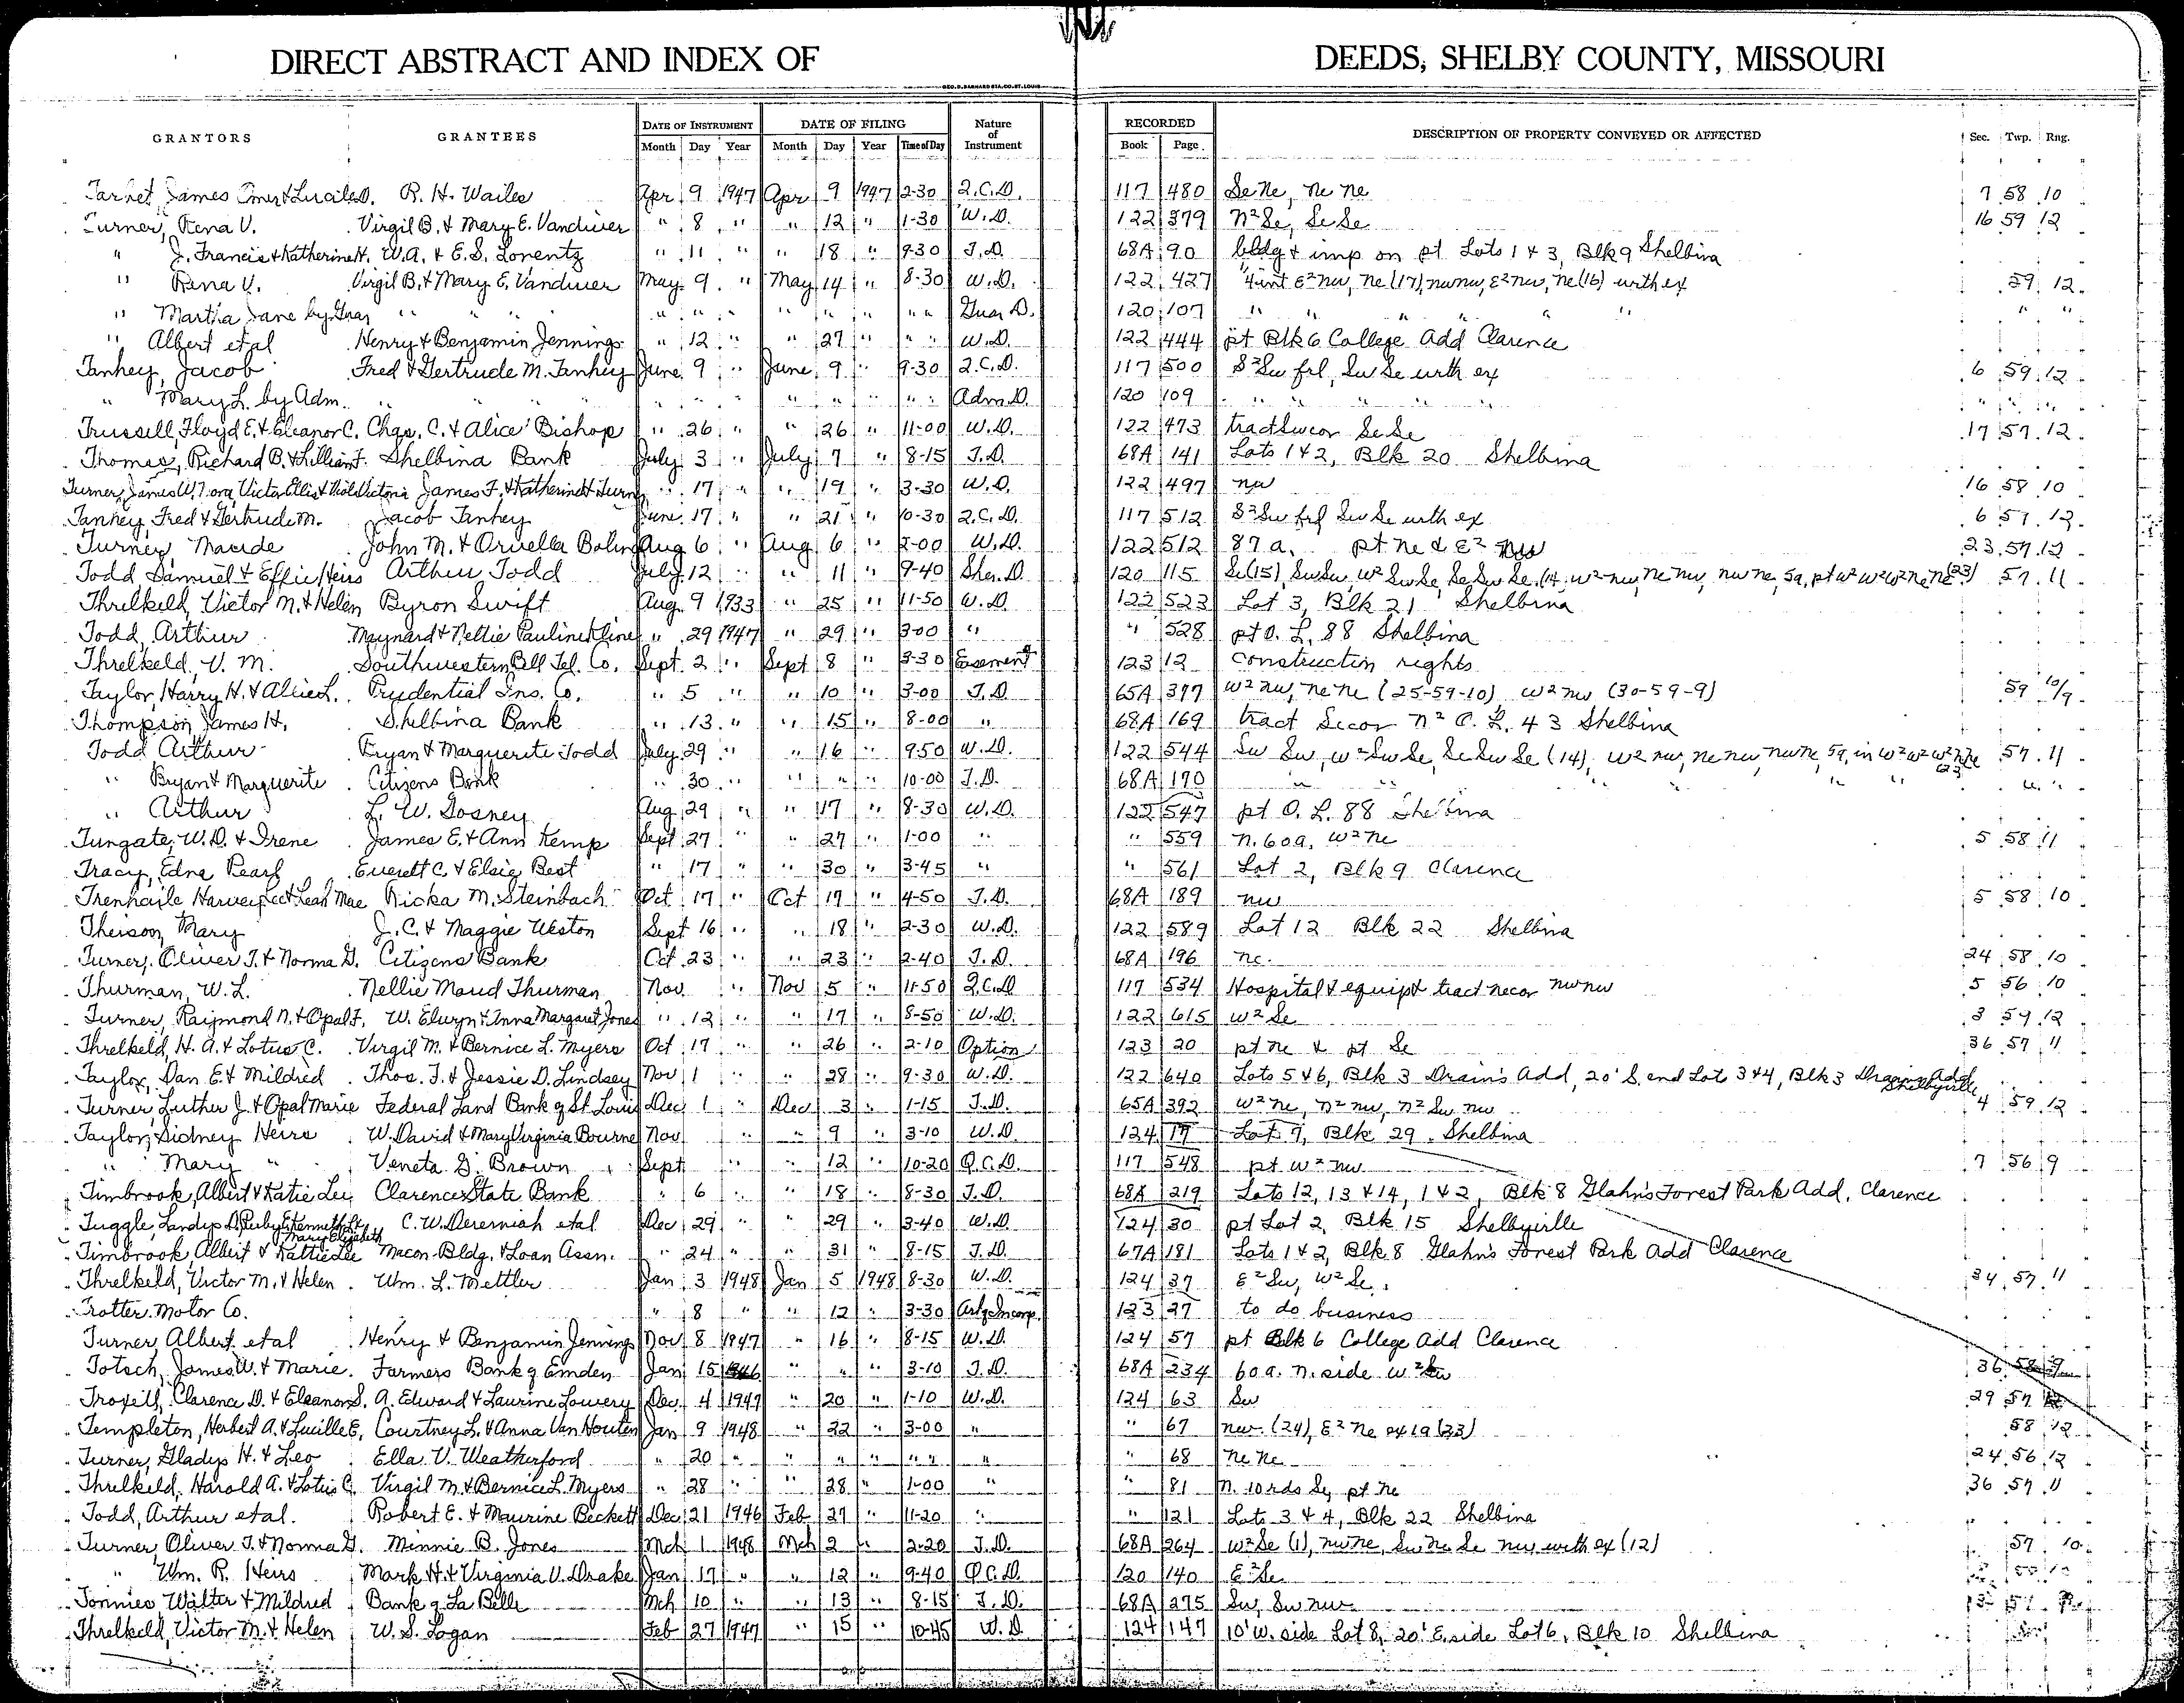 DIRECT ABSTRACT AND INDEX OF DEEDS, SHELBY COUNTY, MISSOURI
GEO. D. BARNARD STA. CO. ST. LOUIS
GRANTORS GRANTEES DATE OF INSTRUMENT DATE OF FILING Nature of Instrument RECORDED DESCRIPTION OF PROPERTY CONVEYED OR AFFECTED Sec. Twp. Rng.
Month Day Year Month Day Year Time of Day Book Page
James Omer & Lucile D. R. H. Wailes Apr 9 1947 Apr 9 1947 2-30 Q.C.D. 117 480 Se Ne, Ne Ne 7 58 10
Turner, Rena V. Virgil B. & Mary E. Vandiver " 8 " " 12 " 1-30 W.D. 122 379 N² Se, Se Se 16 59 12
" J. Francis & Katherine H. W.A. & E.S. Lorentz " 11 " " 18 " 9-30 T.D. 68A 90 bldg & imp on pt Lots 1 & 3, Blk 9 Shelbina
" Rena V. Virgil B. & Mary E. Vandiver May 9 " May 14 " 8-30 W.D. 122 427 E² nw, Ne (17), nw nw, E² nw, Ne (16) with ex 59 12
" Martha Jane by Guar " " " " " " " " " " " Guar D. 120 107 " " " " " " "
" Albert et al Henry & Benjamin Jennings " 12 " " 27 " " " W.D. 122 444 pt Blk 6 College Add Clarence
Tanhey, Jacob Fred & Gertrude M. Tanhey June 9 " June 9 " 9-30 Q.C.D. 117 500 S² Sw frl, Sw Se with ex 6 59 12
" Mary L. by Adm. " " " " " " " " " " " Adm D. 120 109 " " " " " " " "
Trussell, Floyd E. & Eleanor C. Chas. C. & Alice Bishop " 26 " " 26 " 11-00 W.D. 122 473 tract Swcor Se Se 17 57 12
Thomas, Richard B. & Lillian F. Shelbina Bank July 3 " July 7 " 8-15 T.D. 68A 141 Lots 1 & 2, Blk 20 Shelbina
Turner, James W. Victor Ellis & Viola Victoria James F. & Katherine H. Turner " 17 " " 19 " 3-30 W.D. 122 497 nw 16 58 10
Tanhey, Fred & Gertrude M. Jacob Tanhey June 17 " " 21 " 10-30 Q.C.D. 117 512 S² Sw frl Sw Se with ex 6 57 12
Turner, Maude John M. & Orvella Bolin Aug 6 " Aug 6 " 2-00 W.D. 122 512 87 a. pt Ne & E² nw 23 57 12
Todd, Samuel & Effie Heirs Arthur Todd July 12 " " 11 " 9-40 Sher. D. 120 115 Se (15), Sw Sw, W² Sw Se, Se Sw Se (14) W² nw, Ne nw, nw ne, 5a, pt W² W² W² Ne Ne (23) 57 11
Threlkeld, Victor M. & Helen Byron Swift Aug. 9 1933 " 25 " 11-50 W.D. 122 523 Lot 3, Blk 21 Shelbina
Todd, Arthur Maynard & Nellie Pauline Kline " 29 1947 " 29 " 3-00 " " 528 pt O. L. 88 Shelbina
Threlkeld, V. M. Southwestern Bell Tel. Co. Sept. 2 " Sept 8 " 3-30 Easement 123 12 construction rights
Taylor, Harry H. & Allie L. Prudential Ins. Co. " 5 " " 10 " 3-00 T.D. 65A 377 W² nw, Ne Ne (25-59-10) W² nw (30-59-9) 59 10/9
Thompson, James H. Shelbina Bank " 13 " " 15 " 8-00 " 68A 169 tract Secor N² O. L. 43 Shelbina
Todd Arthur Bryan & Marguerite Todd July 29 " " 16 " 9-50 W.D. 122 544 Sw Sw, W² Sw Se, Se Sw Se (14), W² nw, Ne nw, nw ne, 5a, in W² W² W² Ne Ne (23) 57 11
" Bryan & Marguerite Citizens Bank " 30 " " " " 10-00 T.D. 68A 170 " " " " " "
" Arthur L. W. Gosney Aug 29 " " 17 " 8-30 W.D. 122 547 pt O. L. 88 Shelbina
Tungate, W. D. & Irene James E. & Ann Kemp Sept 27 " " 27 " 1-00 " " 559 N. 60a. W² Ne 5 58 11
Tracy, Edna Pearl Everett C. & Elsie Best " 17 " " 30 " 3-45 " " 561 Lot 2, Blk 9 Clarence
Trenhaile Harvey Lee & Leah Mae Ricka M. Steinbach Oct 17 " Oct 17 " 4-50 T.D. 68A 189 nw 5 58 10
Theison, Mary J. C. & Maggie Weston Sept 16 " " 18 " 2-30 W.D. 122 589 Lot 12 Blk 22 Shelbina
Turner, Oliver T. & Norma G. Citizens Bank Oct 23 " " 23 " 2-40 T.D. 68A 196 ne 24 58 10
Thurman, W. L. Nellie Maud Thurman Nov " Nov 5 " 11-50 Q.C.D. 117 534 Hospital & equipt tract necor nw nw 5 56 10
Turner, Raymond N. & Opal F. W. Elwyn & Anna Margaret Jones " 12 " " 17 " 8-50 W.D. 122 615 W² Se 3 59 12
Threlkeld, H. A. & Lotus C. Virgil M. & Bernice L. Myers Oct 17 " " 26 " 2-10 Option 123 20 pt ne & pt Se 36 57 11
Taylor, Dan E. & Mildred Thos. J. & Jessie D. Lindsey Nov 1 " " 28 " 9-30 W.D. 122 640 Lots 5 & 6, Blk 3 Drain's Add, 20' S. end Lot 3 & 4, Blk 3 Drain's Add Shelbyville
Turner, Luther J. & Opal Marie Federal Land Bank of St. Louis Dec 1 " Dec 3 " 1-15 T.D. 65A 392 W² ne, N² nw, N² Sw nw 4 59 12
Taylor, Sidney Heirs W. David & Mary Virginia Bourne Nov " " 9 " 3-10 W.D. 124 17 Lot 9, Blk 29 Shelbina
" Mary " Veneta G. Brown Sept " " 12 " 10-20 Q.C.D. 117 548 pt W² nw 7 56 9
Timbrook, Albert & Katie Lee Clarence State Bank " 6 " " 18 " 8-30 T.D. 68A 219 Lots 12, 13 & 14, 1 & 2, Blk 8 Glahn's Forest Park Add, Clarence
Tuggle, Landys D. Ruby E. Kenneth L. Mary Elizabeth C. W. Deremiah et al Dec 29 " " 29 " 3-40 W.D. 124 30 pt Lot 2, Blk 15 Shelbyville
Timbrook, Albert & Kattie Lee Macon Bldg. & Loan Assn. " 24 " " 31 " 8-15 T.D. 67A 181 Lots 1 & 2, Blk 8 Glahn's Forest Park Add Clarence
Threlkeld, Victor M. & Helen Wm. L. Mettler Jan 3 1948 Jan 5 1948 8-30 W.D. 124 37 E² Sw, W² Se 34 57 11
Trotter Motor Co. " 8 " " 12 " 3-30 Art of Incorp. 123 27 to do business
Turner, Albert et al Henry & Benjamin Jennings Nov 8 1947 " 16 " 8-15 W.D. 124 57 pt Blk 6 College Add Clarence
Totsch, James W. & Marie Farmers Bank of Emden Jan 15 1946 " " " 3-10 T.D. 68A 234 60 a. N. side W² Sw 36 58 9
Troxell, Clarence D. & Eleanor S. A. Edward & Laurine Lowery Dec 4 1947 " 20 " 1-10 W.D. 124 63 Sw 29 57
Templeton, Herbert A. & Lucille E. Courtney L. & Anna Van Houten Jan 9 1948 " 22 " 3-00 " " 67 nw (24), E² Ne ex 1a (23) 58 12
Turner, Gladys H. & Leo Ella V. Weatherford " 20 " " " " " " " " 68 Ne Ne 24 56 12
Threlkeld, Harold A. & Lotus C. Virgil M. & Bernice L. Myers " 28 " " 28 " 1-00 " " 81 N. 10 rds Sq pt ne 36 57 11
Todd, Arthur et al. Robert E. & Maurine Beckett Dec 21 1946 Feb 27 " 11-20 " " 121 Lots 3 & 4, Blk 22 Shelbina
Turner, Oliver T. & Norma G. Minnie B. Jones Mch 1 1948 Mch 2 " 2-20 T.D. 68A 264 W² Se (1), nw ne, Sw Ne Se nw with ex (12) 57 10
" Wm. R. Heirs Mark H. & Virginia V. Drake Jan 17 " " 12 " 9-40 Q.C.D. 120 140 E² Se
Tonnies Walter & Mildred Bank of La Belle Mch 10 " " 13 " 8-15 T.D. 68A 275 Sw, Sw nw
Threlkeld, Victor M. & Helen W. S. Logan Feb 27 1947 " 15 " 10-45 W.D. 124 147 10' W. side Lot 8, 20' E. side Lot 6, Blk 10 Shelbina